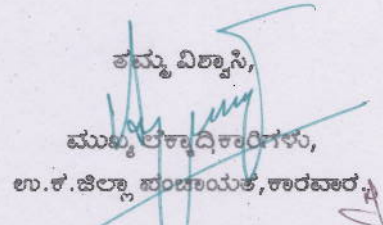 ತಮ್ಮ ವಿಶ್ವಾಸಿ,
ಮುಖ್ಯ ಲೆಕ್ಕಾಧಿಕಾರಿಗಳು,
ಉ.ಕ.ಜಿಲ್ಲಾ ಪಂಚಾಯತ,ಕಾರವಾರ.